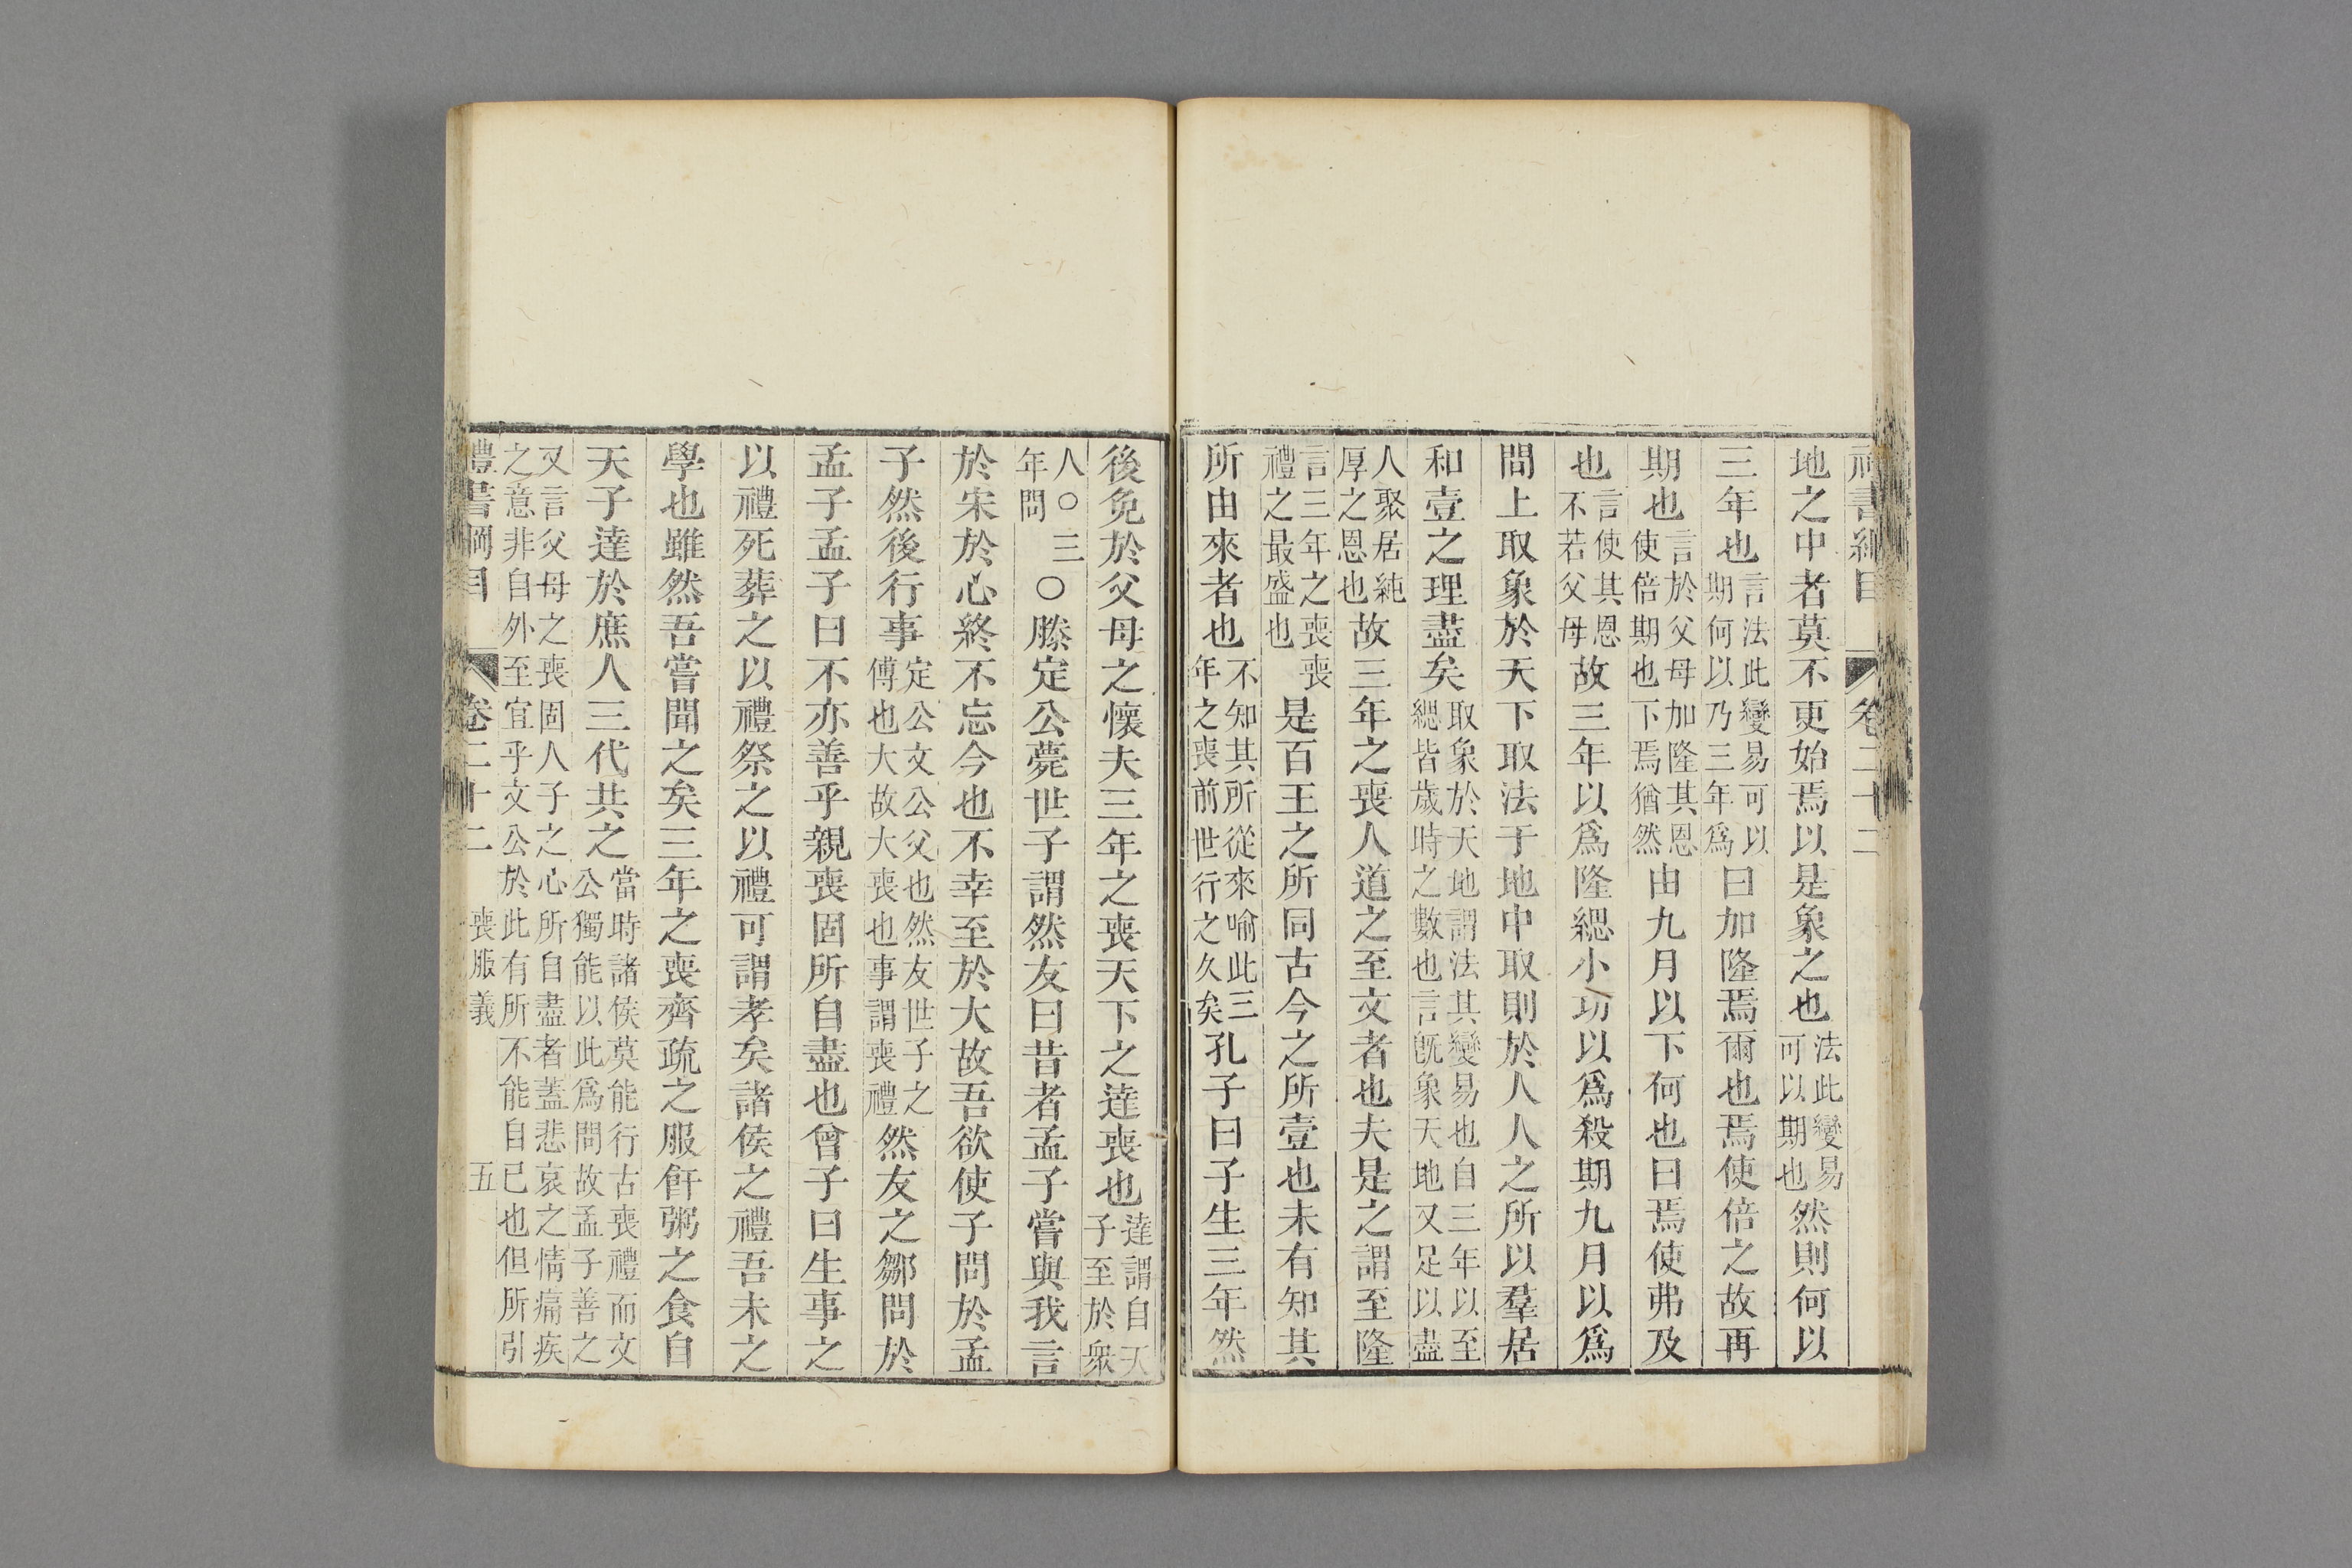 禮書綱目 卷二十二
地之中者莫不更始焉以是象之也法此變易可以期也然則何以
三年也言法此變易可以期何以乃三年爲曰加隆焉爾也焉使倍之故再
期也言於父母加隆其恩使倍期也下焉猶然由九月以下何也曰焉使弗及
也言使其恩不若父母故三年以爲隆緦小功以爲殺期九月以爲
間上取象於天下取法于地中取則於人人之所以羣居
和壹之理盡矣取象於天地謂法其變易也自三年以至緦皆歲時之數也言旣象天地又足以盡
人聚居純厚之恩也故三年之喪人道之至文者也夫是之謂至隆
言三年之喪喪禮之最盛也是百王之所同古今之所壹也未有知其
所由來者也不知其所從來喻此三年之喪前世行之久矣孔子曰子生三年然
後免於父母之懷夫三年之喪天下之達喪也達謂自天子至於衆
人○三年問○滕定公薨世子謂然友曰昔者孟子嘗與我言
於宋於心終不忘今也不幸至於大故吾欲使子問於孟
子然後行事定公文公父也然友世子之傅也大故大喪也事謂喪禮然友之鄒問於
孟子孟子曰不亦善乎親喪固所自盡也曾子曰生事之
以禮死葬之以禮祭之以禮可謂孝矣諸侯之禮吾未之
學也雖然吾嘗聞之矣三年之喪齊疏之服飦粥之食自
天子達於庶人三代共之當時諸侯莫能行古喪禮而文公獨能以此爲問故孟子善之
又言父母之喪固人子之心所自盡者蓋悲哀之情痛疾之意非自外至宜乎文公於此有所不能自已也但所引
禮書綱目 卷二十二 喪服義 五